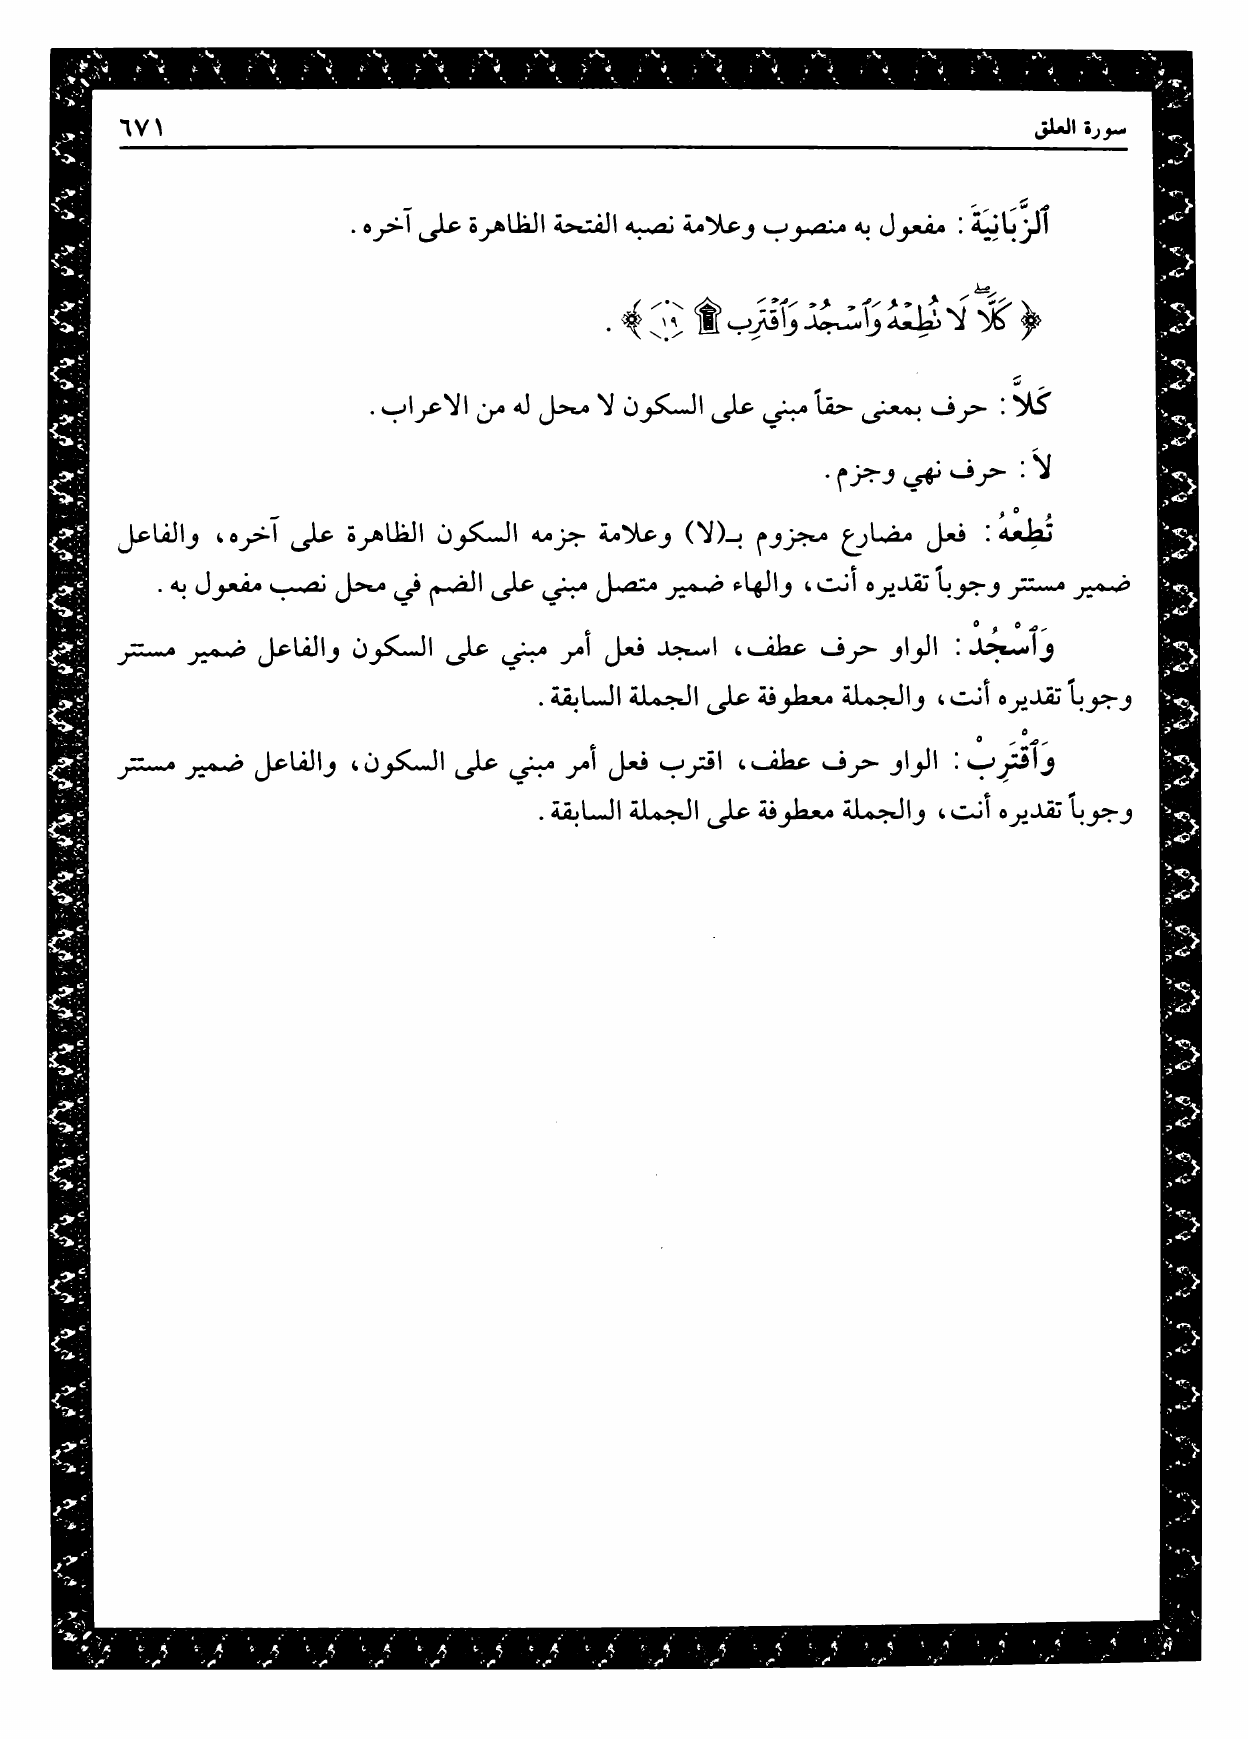 سورة العلق ٦٧١
ٱلزَّبَانِيَةَ : مفعول به منصوب وعلامة نصبه الفتحة الظاهرة على آخره .
﴿ كَلَّا لَا نُطِعْهُ وَٱسْجُدْ وَٱقْتَرِب ۩ ١٩ ﴾ .
كَلاَّ : حرف بمعنى حقاً مبني على السكون لا محل له من الاعراب .
لاَ : حرف نهي وجزم .
تُطِعْهُ : فعل مضارع مجزوم بـ(لا) وعلامة جزمه السكون الظاهرة على آخره، والفاعل
ضمير مستتر وجوباً تقديره أنت، والهاء ضمير متصل مبني على الضم في محل نصب مفعول به .
وَٱسْجُدْ : الواو حرف عطف، اسجد فعل أمر مبني على السكون والفاعل ضمير مستتر
وجوباً تقديره أنت، والجملة معطوفة على الجملة السابقة .
وَٱقْتَرِبْ : الواو حرف عطف، اقترب فعل أمر مبني على السكون، والفاعل ضمير مستتر
وجوباً تقديره أنت، والجملة معطوفة على الجملة السابقة .